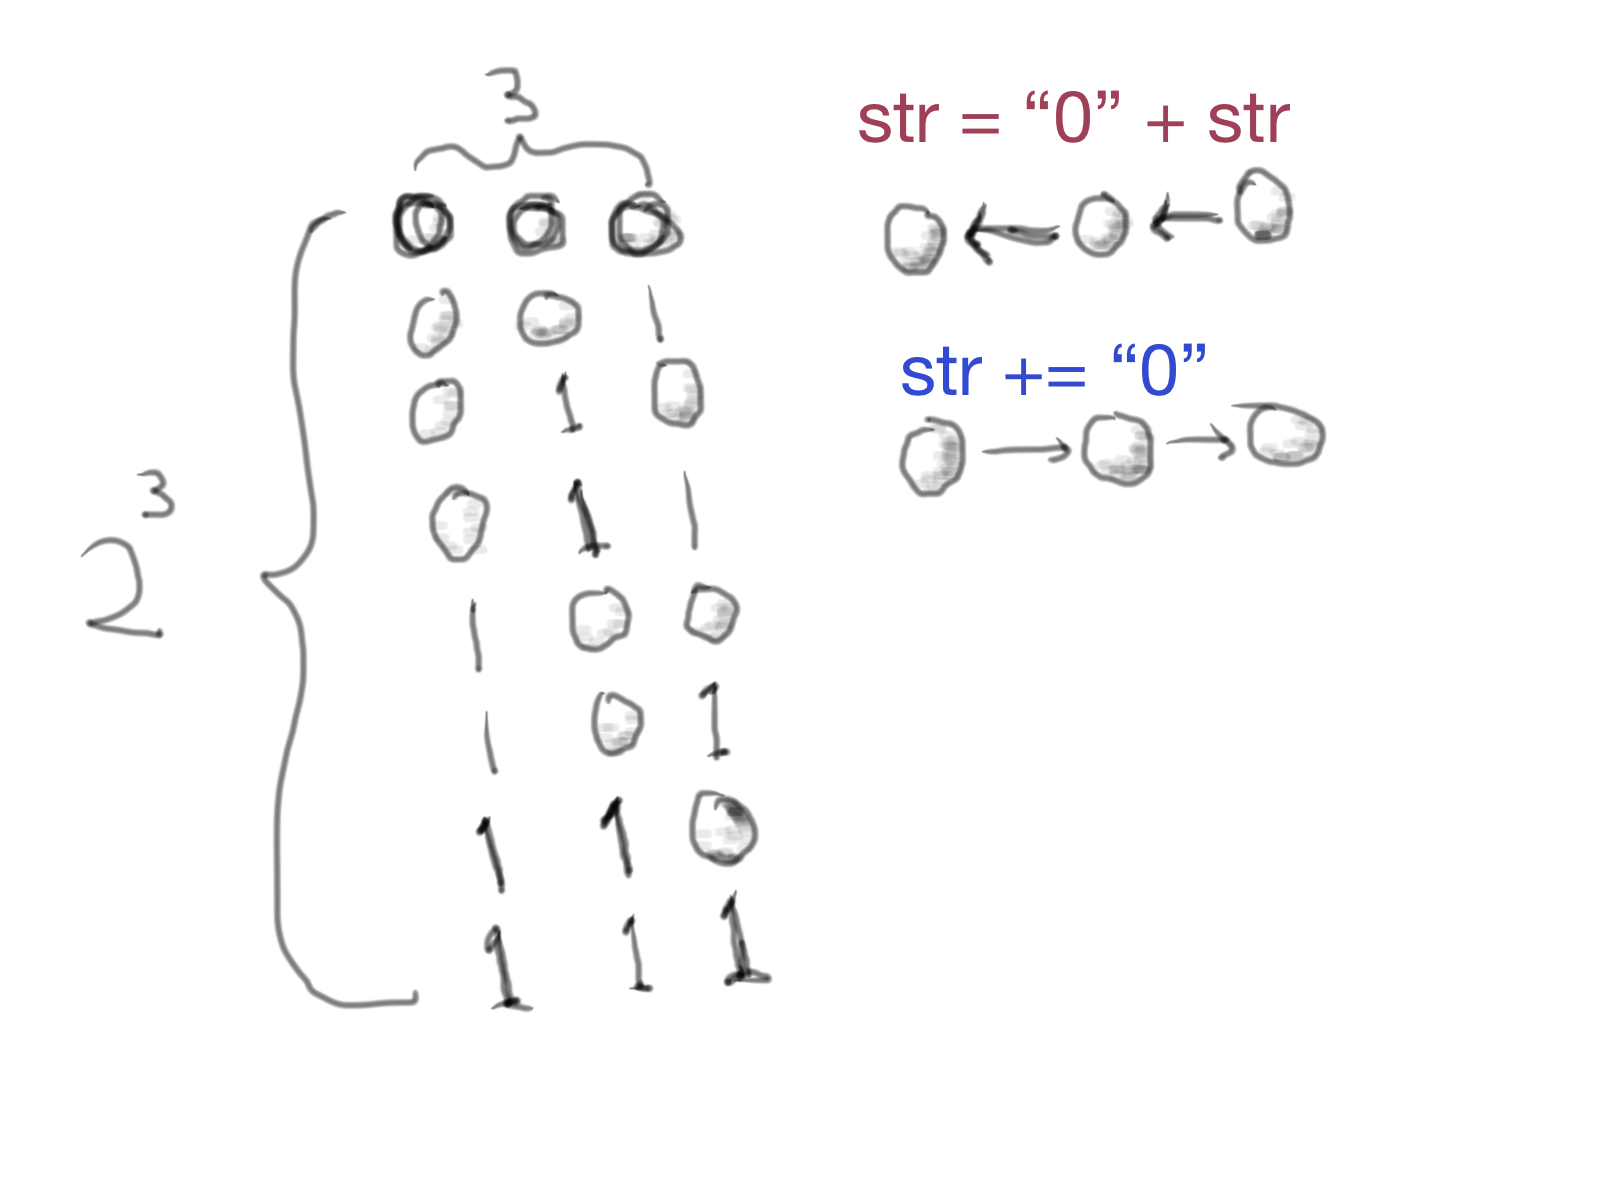 3
0 0 0
0 0 1
0 1 0
0 1 1
1 0 0
1 0 1
1 1 0
1 1 1
2³
str = “0” + str
0 ← 0 ← 0
str += “0”
0 → 0 → 0